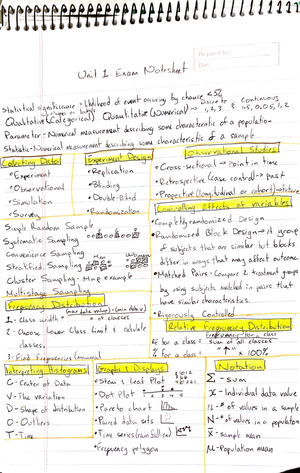 Prepared by:
Date:
Unit 1 Exam Notesheet
Statistical significance - Likelihood of event occuring by chance <5%
Qualitative (Categorical) Quantitative (Numerical) → Discrete 1, 2, 3 & Continuous 1.5, 0.05, 1.2
Parameter - Numerical measurement describing some characteristic of a population
Statistic - Numerical measurement describing some characteristic of a sample
Collecting Data
• Experiment
• Observational
• Simulation
• Survey
Experiment Design
• Replication
• Blinding
• Double-Blind
• Randomization
Observational Studies
• Cross-sectional → Point in time
• Retrospective (case control) → past
• Prospective (longitudinal or cohort) → Future
Controlling Effects of Variables
• Completely randomized Design
• Randomized Block Design → A group
of subjects that are similar but blocks
differ in ways that may affect outcome.
• Matched Pairs - Compare 2 treatment groups
by using subjects matched in pairs that
have similar characteristics.
• Rigorously Controlled
Simple Random Sample
Systematic Sampling
Convenience Sampling
Stratified Sampling
Men Women
Cluster Sampling - Map example
Multistage Sampling
Frequency Distribution
1. Class width = (max data value) - (min data v)
# of classes
2. Choose Lower Class Limit & calculate
classes.
3. Find frequencies (manual)
Relative Frequency Distribution
rf for a class = frequency for a class
sum of all classes
% for a class = " ÷ " × 100%
Interpreting Histograms
C - Center of Data
V - The variation
D - Shape of distribution
O - Outliers
T - Time
Graphs & Displays
• Stem & Leaf Plot
• Dot Plot
• Pareto chart
• Paired data sets
• Time series (rain fall ex)
• Frequency polygon
Notation
Σ - sum
x - Individual data value
n - # of values in a sample
N - # of values in a population
x̄ - sample mean
μ - Population mean